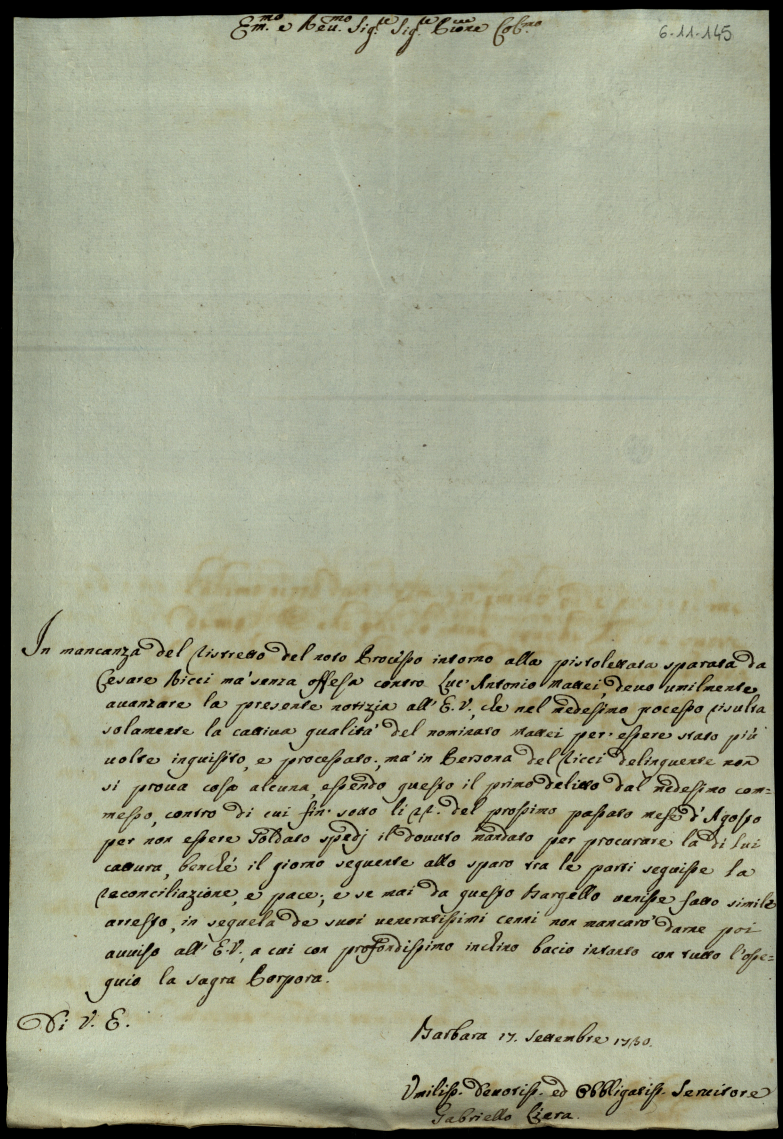 Em.mo e Reu.mo Sig.re Sig.re P.rone Col.mo
6-11-145
In mancanza del ristretto del noto Processo intorno alla pistolettata sparata da
Cesare Ricci ma' senza offesa contro Luc' Antonio Mattei, devo umilmente
avanzare la presente notizia all' E. V., che nel medesimo pocesso risulta
solamente la cattiva qualità del nominato Mattei per essere stato più
volte inquisito, e processato; ma' in Persona del Ricci delinquente non
si prova cosa alcuna, essendo questo il primo delitto dal medesimo com=
messo, contro di cui fin' sotto li del prossimo passato mese d'Agosto
per non essere Soldato spedj il dovuto mandato per procurare la di lui
cattura, benché il giorno seguente allo sparo tra le parti seguisse la
reconciliazione, e pace; e se mai da questo Bargello venisse fatto simile
arresto, in sequela de suoi veneratissimi cenni non mancarò darne poi
avviso all' E. V., a cui con profondissimo inchino bacio intanto con tutto l'osse=
quio la sagra Porpora.
Di V. E.
Barbara 17. Settembre 1750.
Vmiliss. Devotiss. ed Obbligatiss. Servitore
Gabriello